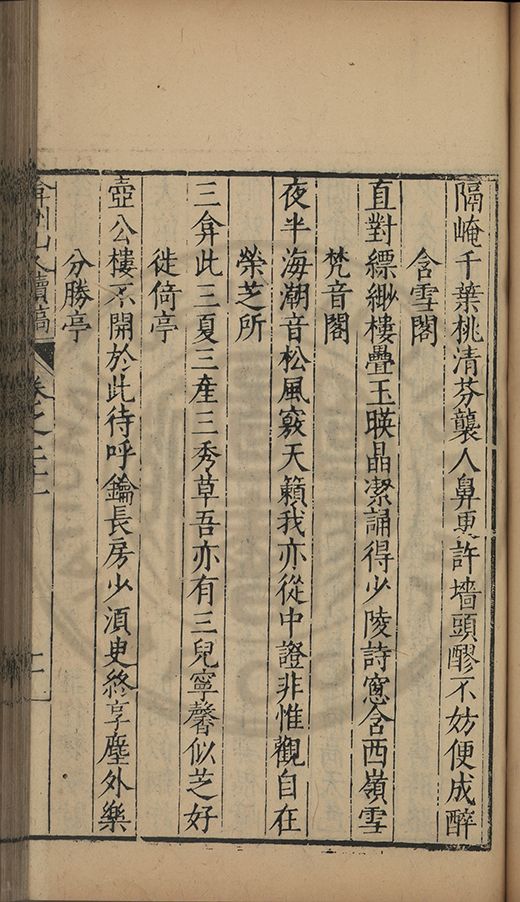 隔崦千葉桃清芬襲人鼻更許墻頭醪不妨便成醉
含雪閣
直對縹緲樓疊玉暎晶潔誦得少陵詩窻含西嶺雪
梵音閣
夜半海潮音松風竅天籟我亦從中證非惟觀自在
榮芝所
三弇此三夏三産三秀草吾亦有三兒寧馨似芝好
徙倚亭
壺公樓不開於此待呼鑰長房少湏臾終享塵外樂
分勝亭
弇州山人續稿 卷之二十二